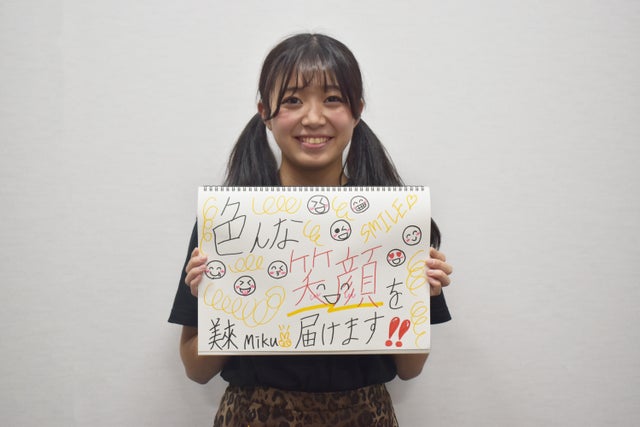 色んな
SMILE♡
笑顔を
美来 Miku
届けます!!